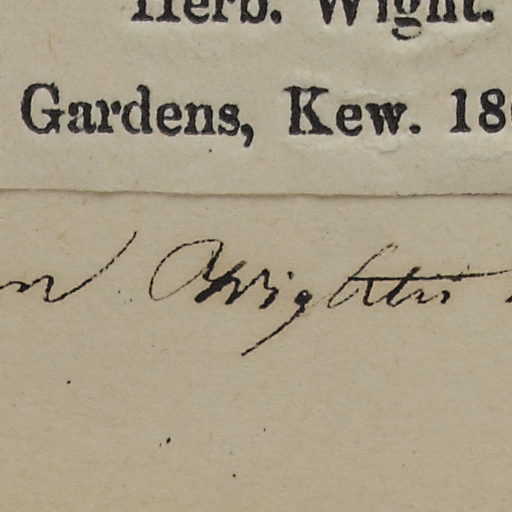 Herb. Wight.
Gardens, Kew. 18
Wightii